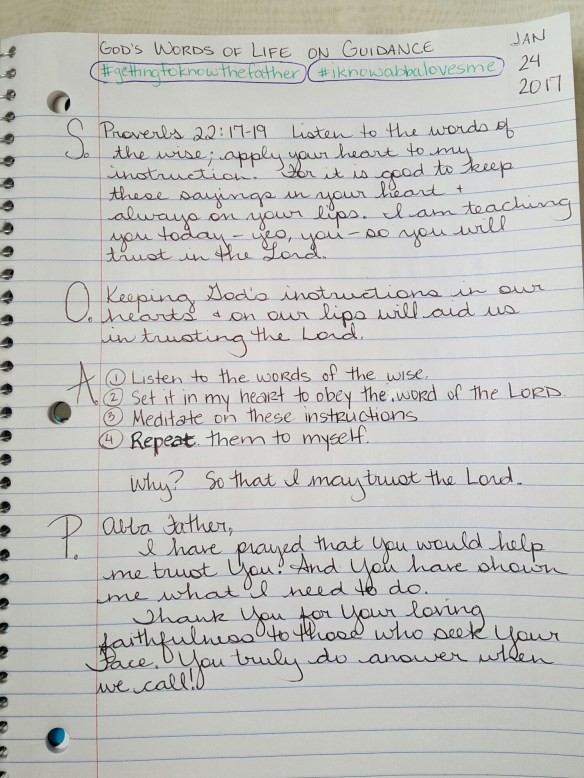 GOD'S WORDS OF LIFE ON GUIDANCE
JAN
24
2017
#gettingtoknowthefather #iknowabbalovesme
S. Proverbs 22:17-19 Listen to the words of
the wise; apply your heart to my
instruction. For it is good to keep
these sayings in your heart +
always on your lips. I am teaching
you today - yes, you - so you will
trust in the Lord.
O. Keeping God's instructions in our
hearts + on our lips will aid us
in trusting the Lord.
A. ① Listen to the words of the wise.
② Set it in my heart to obey the word of the LORD
③ Meditate on these instructions
④ Repeat them to myself.
Why? So that I may trust the Lord.
P. Abba Father,
I have prayed that You would help
me trust You! And You have shown
me what I need to do.
Thank You for Your loving
faithfulness to those who seek Your
Face. You truly do answer when
we call!